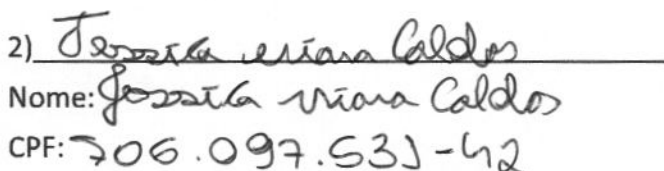 2) Jessica viana Caldas
Nome: Jessica viana Caldas
CPF: 706.097.531-42